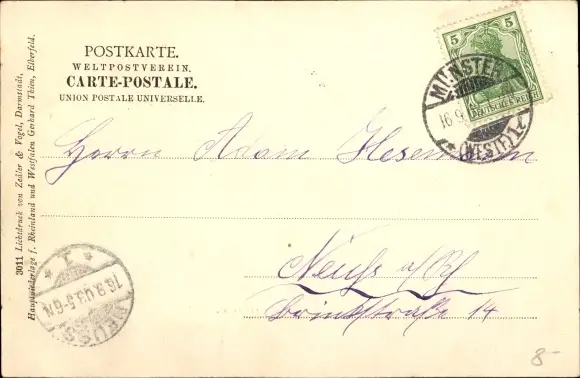 POSTKARTE.
WELTPOSTVEREIN.
CARTE-POSTALE.
UNION POSTALE UNIVERSELLE.
5 5
DEUTSCHES REICH
MÜNSTER
16.9.
(WESTF) 1
Herrn Adam Hesemann
Neuß a/Rh
14
NEUSS
16.9.03.5-6N.
1
3011 Lichtdruck von Zedler & Vogel, Darmstadt,
Hauptniederlage f. Rheinland und Westfalen Gerhard Thien, Elberfeld.
8-